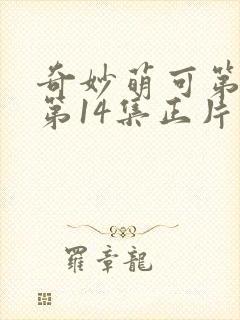 奇妙萌可第
第14集正片
羅章龍